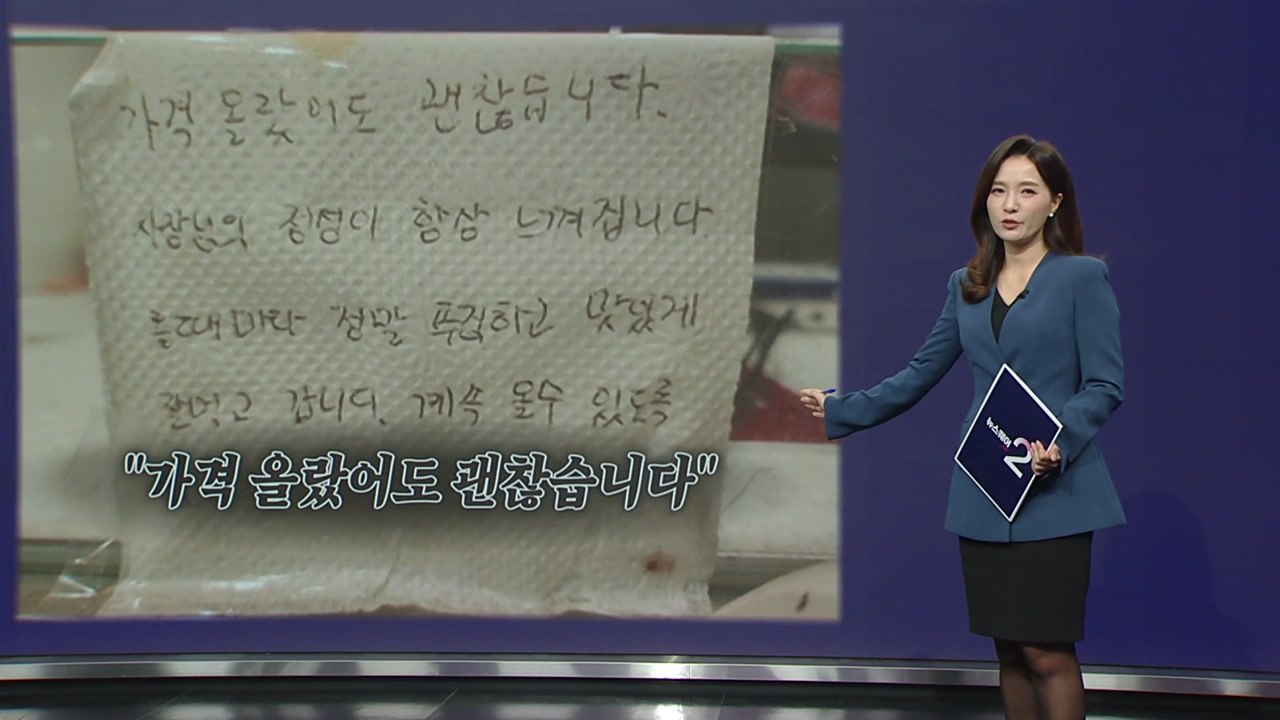 가격 올랐어도 괜찮습니다.
사장님의 정성이 항상 느껴집니다.
올때마다 정말 푸짐하고 맛있게
잘먹고 갑니다. 계속 올수 있도록
"가격 올랐어도 괜찮습니다"
뉴스페어
2